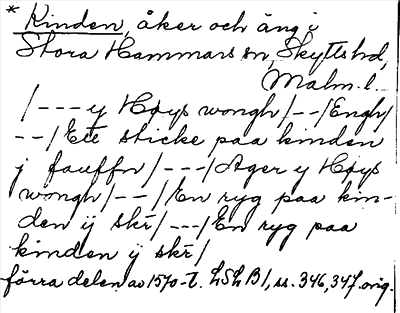 * Kinden, åker och äng i
Stora Hammars sn, Skytts hd,
Malm. l.
/---y Høys wongh/--/Engh/
--/Ett sticke paa kinden
j fauffn/---/Ager y Høys
wongh/--/En ryg paa kin-
den ij skr/---/En ryg paa
kinden ij skr/
förra delen av 1570-t. LSLB1, ss. 346, 347. orig.